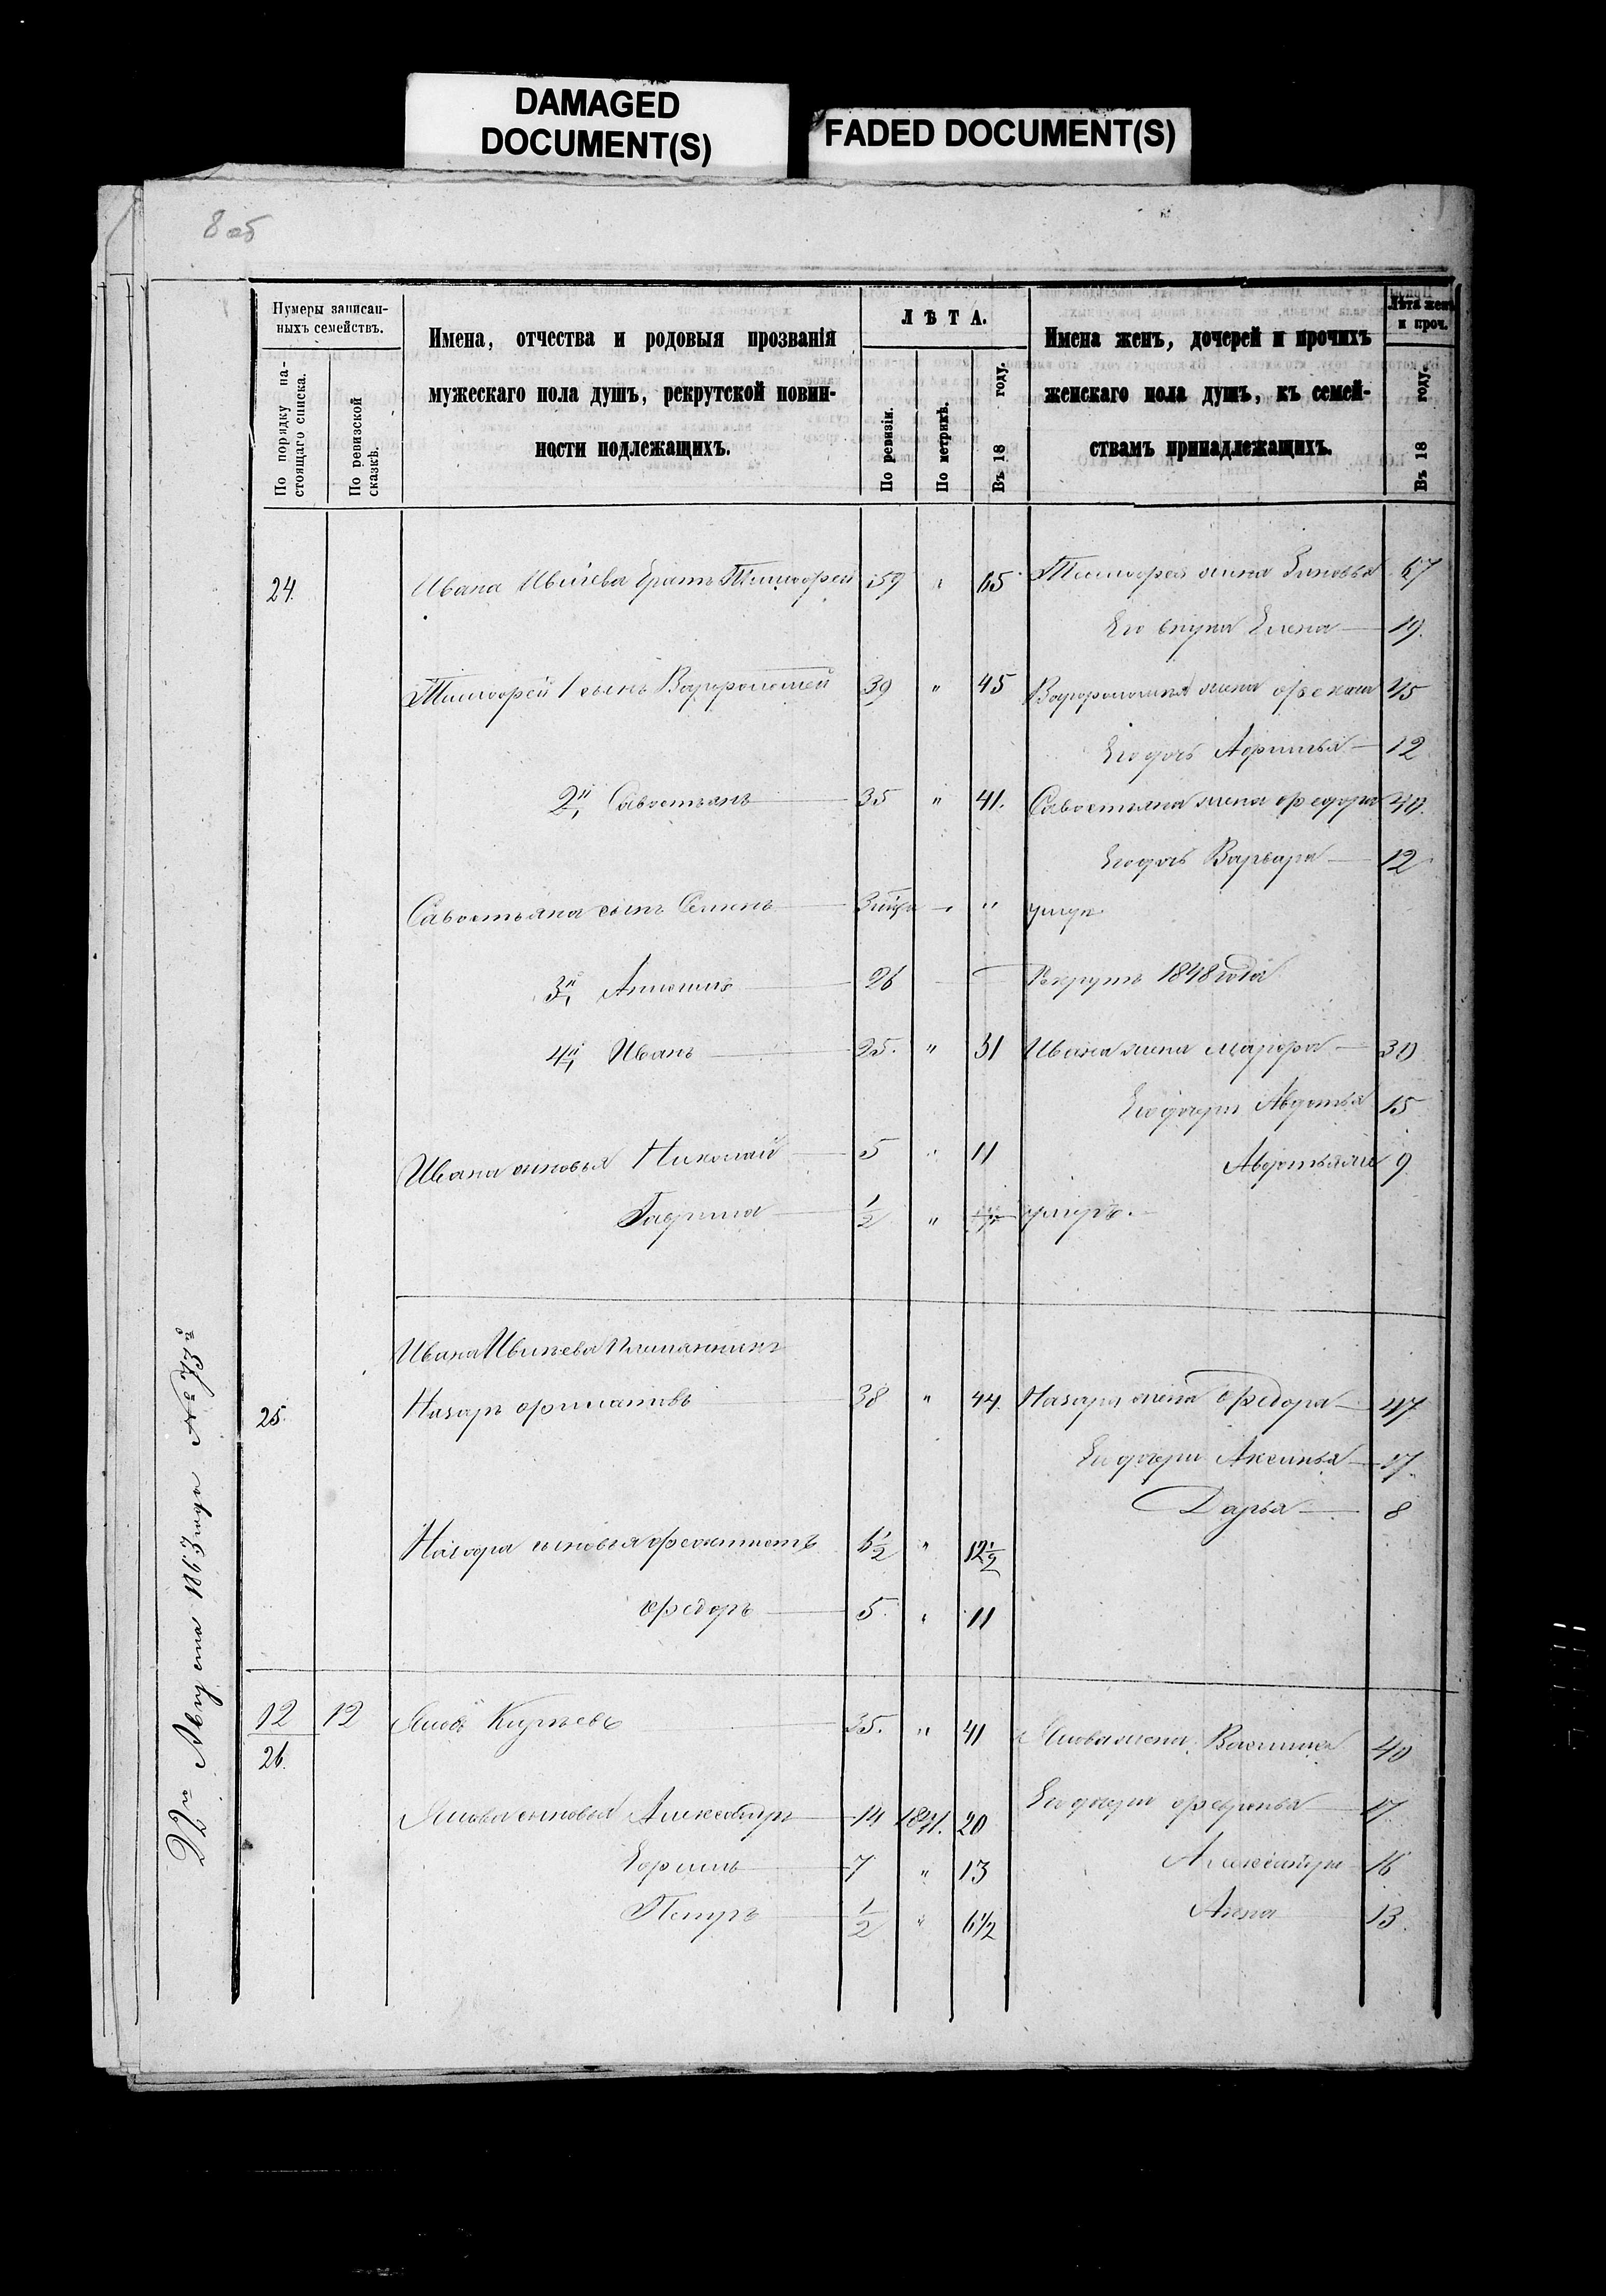 DAMAGED
DOCUMENT(S)
FADED DOCUMENT(S)
8 об
Нумеры записан-
ныхъ семействъ.
По порядку на-
стоящаго списка.
По ревизской
сказкѣ.
Имена, отчества и родовыя прозванія
мужескаго пола душъ, рекрутской повин-
ности подлежащихъ.
ЛѢТА.
По ревизіи.
По метрикѣ.
Въ 18 году.
Имена женъ, дочерей и прочихъ
женскаго пола душъ, къ семей-
ствамъ принадлежащихъ.
Лѣта женъ
и проч.
Въ 18 году.
24. Ивана братъ Тимофей 59 " 65 Тимофея жена Зиновья 67
Его внука Елена 19.
Тимофея 1 сынъ Варфоломей 39 " 45 Варфоломея жена 45
Его дочь Афимья 12
2й Савостьянъ 35 " 41. Савостьяна жена Федора 40.
Его дочь Варвара 12
Савостьяна сынъ Семенъ " "
3й 26 Рекрутъ 1848 года
4й Иванъ 25. " 31 Ивана жена Марфа 30
Его дочери Авдотья 15
Ивана сыновья Николай 5 " 11 Авдотья же 9
Гаврила 1/2 " умеръ.
Ивана племянникъ
25. Назаръ 38 " 44. Назара жена Федора 47
Его дочери Аксинья 17
Дарья 8
Назара сыновья Феоктистъ 6 1/2 " 12 1/2
Федоръ 5. " 11
12 12 Яковъ 35. " 41 Якова жена Василиса 40
26.
Якова сыновья Александръ 14 1841. 20 Его дочери Февронья 17
Ефимъ 7 " 13 Александра 16
Петръ 1/2 " 6 1/2 Анна 13.
22го Августа 1863 года №